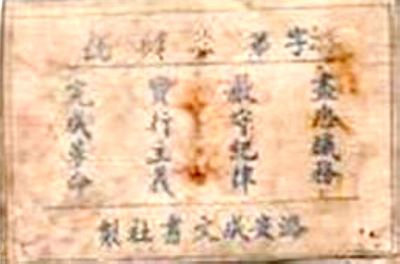 字第 號
盡忠職務
嚴守紀律
實行主義
完成革命
潞安成文書社製